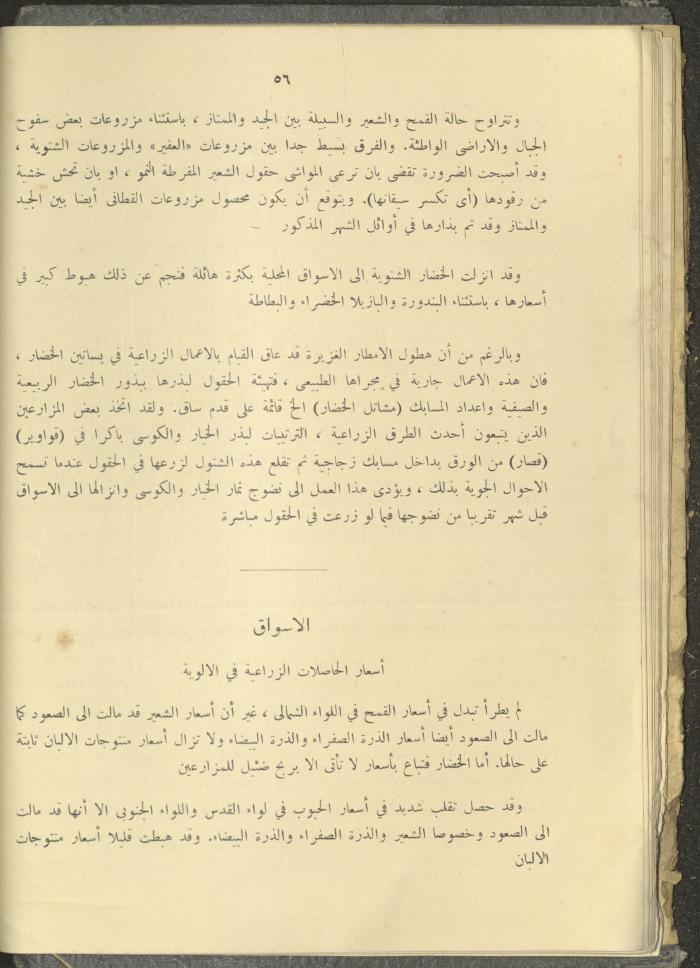 ٥٦
وتتراوح حالة القمح والشعير والسبيلة بين الجيد والممتاز ، باستثناء مزروعات بعض سفوح
الجبال والاراضى الواطئة. والفرق بسيط جدا بين مزروعات «العفير» والمزروعات الشتوية ،
وقد أصبحت الضرورة تقضى بان ترعى المواشى حقول الشعير المفرطة النمو ، او بان تحش خشية
من رقودها (أى تكسر سيقانها). ويتوقع أن يكون محصول مزروعات القطانى أيضا بين الجيد
والممتاز وقد تم بذارها في أوائل الشهر المذكور
وقد انزلت الخضار الشتوية الى الاسواق المحلية بكثرة هائلة فنجم عن ذلك هبوط كبير في
أسعارها ، باستثناء البندورة والبازيلا الخضراء والبطاطة
وبالرغم من أن هطول الامطار الغزيرة قد عاق القيام بالاعمال الزراعية في بساتين الخضار ،
فان هذه الاعمال جارية في مجراها الطبيعى ، فتهيئة الحقول لبذرها ببذور الخضار الربيعية
والصيفية واعداد المسابك (مشاتل الخضار) الخ قائمة على قدم ساق. ولقد اتخذ بعض المزارعين
الذين يتبعون أحدث الطرق الزراعية ، الترتيبات لبذر الخيار والكوسى باكرا في (قواوير)
(قصار) من الورق بداخل مسابك زجاجية ثم تقلع هذه الشتول لزرعها في الحقول عندما تسمح
الاحوال الجوية بذلك ، ويؤدى هذا العمل الى نضوج ثمار الخيار والكوسى وانزالها الى الاسواق
قبل شهر تقريبا من نضوجها فيما لو زرعت في الحقول مباشرة
الاسواق
أسعار الحاصلات الزراعية في الالوية
لم يطرأ تبدل في أسعار القمح في اللواء الشمالى ، غير أن أسعار الشعير قد مالت الى الصعود كما
مالت الى الصعود أيضا أسعار الذرة الصفراء والذرة البيضاء ولا تزال أسعار منتوجات الالبان ثابتة
على حالها. أما الخضار فتباع بأسعار لا تأتى الا بربح ضئيل للمزارعين
وقد حصل تقلب شديد في أسعار الحبوب في لواء القدس واللواء الجنوبى الا أنها قد مالت
الى الصعود وخصوصا الشعير والذرة الصفراء والذرة البيضاء. وقد هبطت قليلا أسعار منتوجات
الالبان